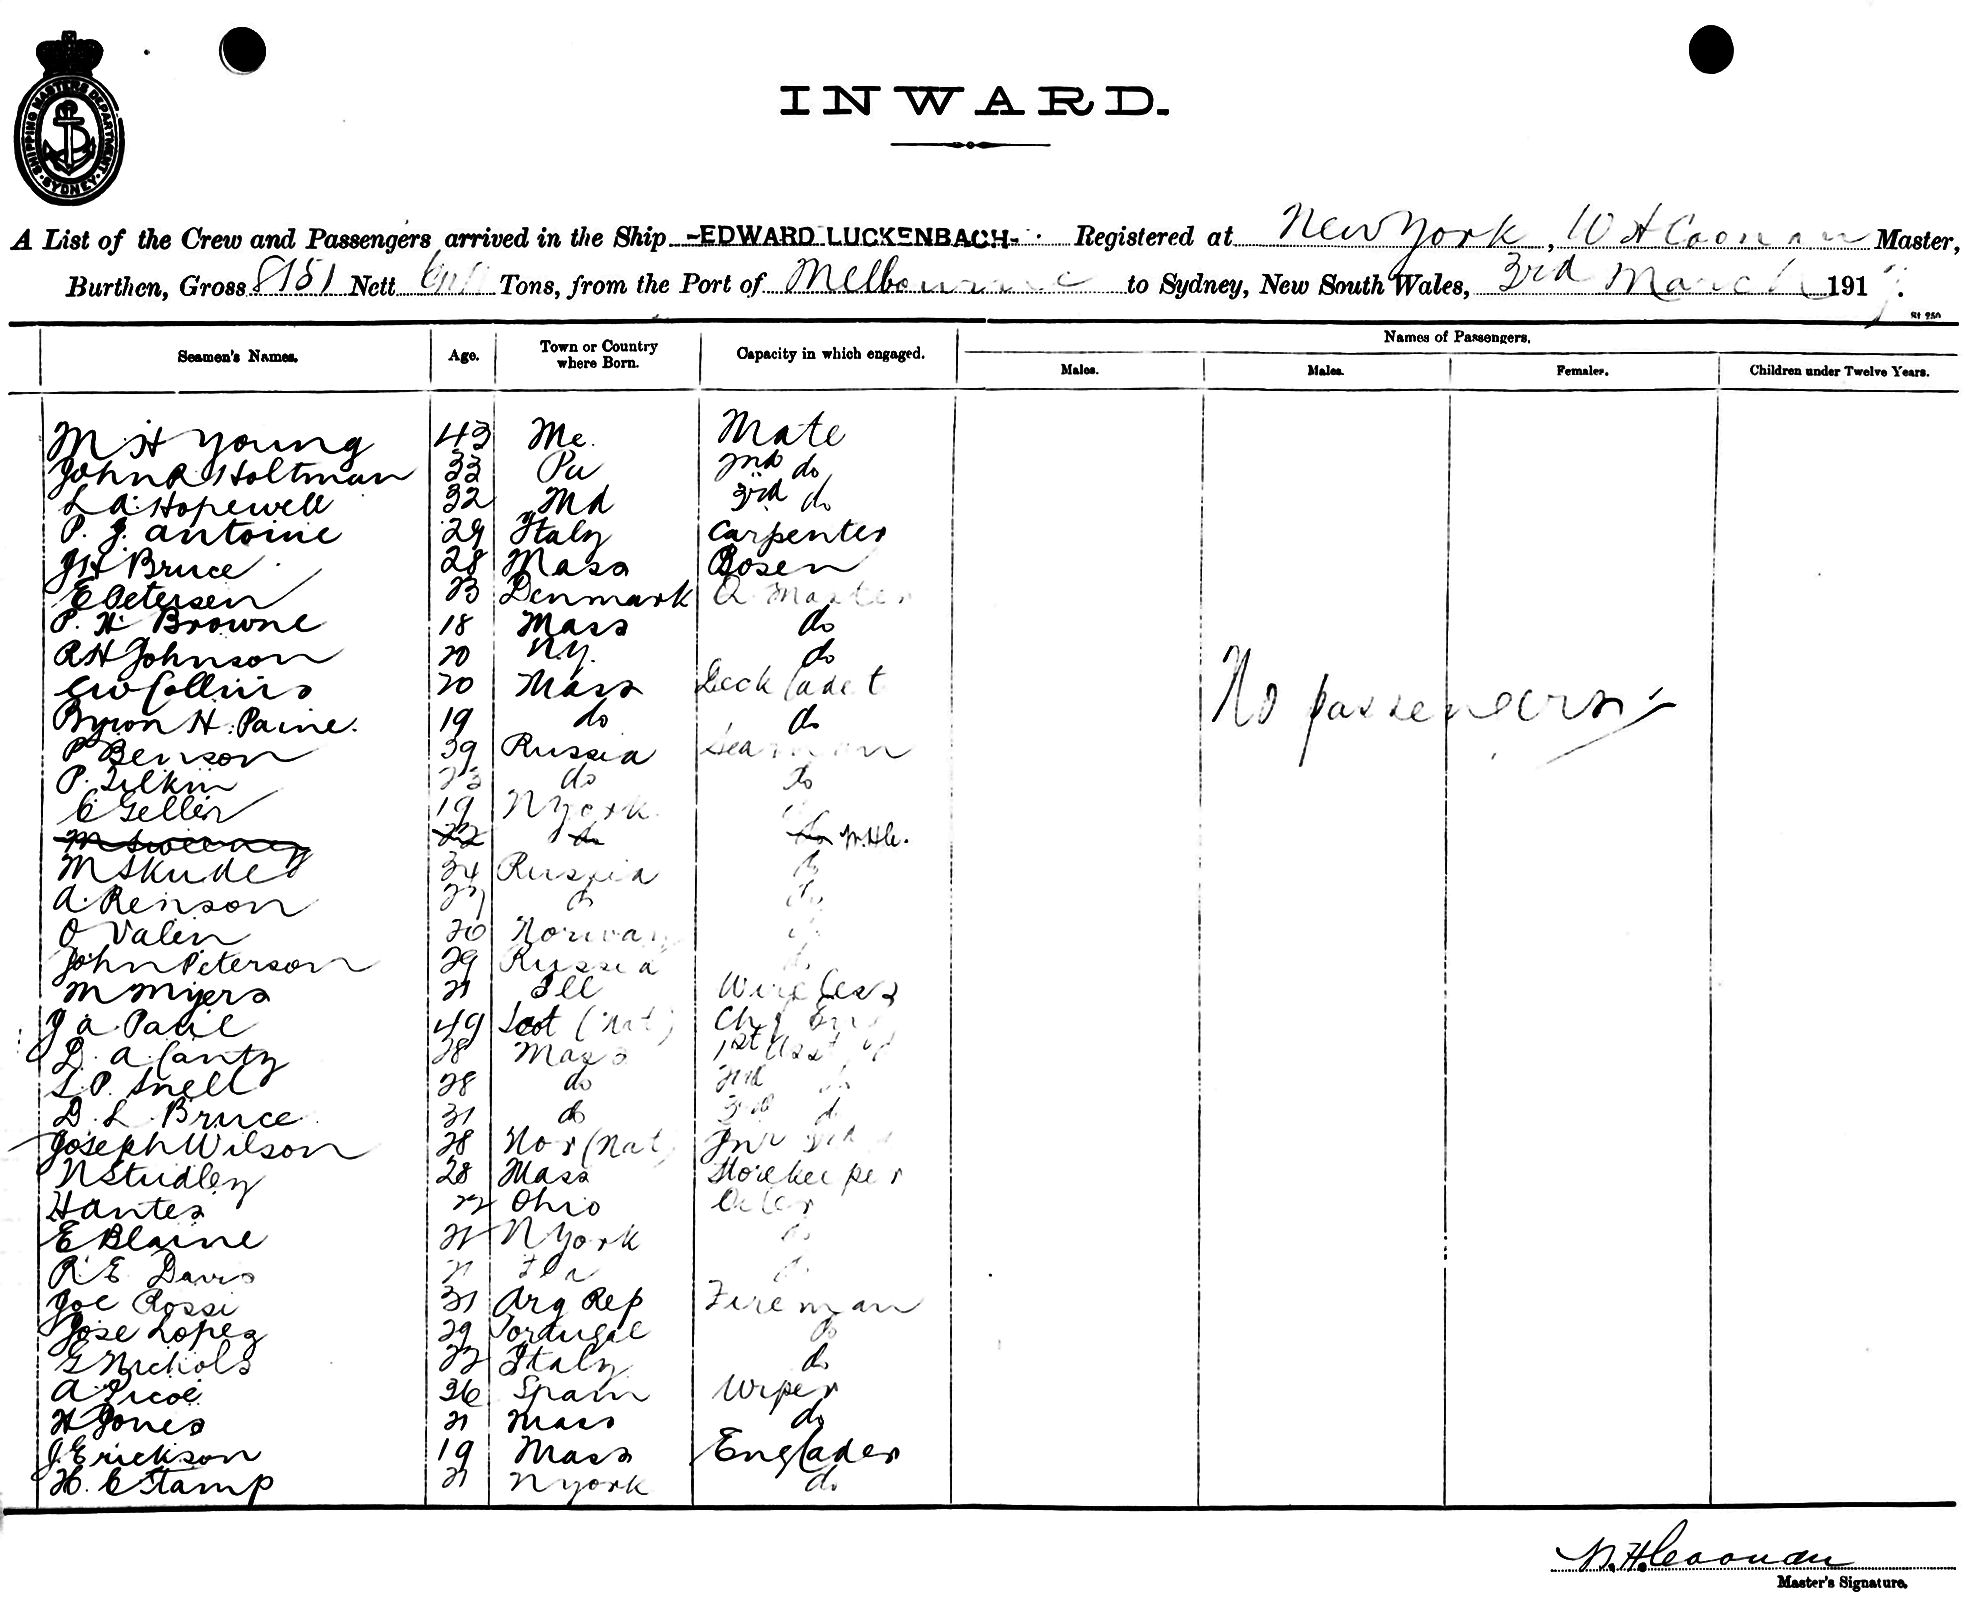 SHIPPING MASTERS DEPARTMENT. SYDNEY.
INWARD.
A List of the Crew and Passengers arrived in the Ship -EDWARD LUCKENBACH- Registered at New York, W H Coonan Master,
Burthen, Gross 8151 Nett Tons, from the Port of Melbourne to Sydney, New South Wales, 3rd March 191
Names of Passengers.
Seamen's Names. Age. Town or Country where Born. Capacity in which engaged. Males. Males. Females. Children under Twelve Years.
M H Young 43 Me. Mate
John R Holtman 33 Pa 2nd do
L A. Hopewell 32 Md 3rd do
P. J. Antoine 29 Italy Carpenter
J H Bruce 28 Mass Bosen
E Petersen 23 Denmark Q Master
P. H. Browne 18 Mass do
R H Johnson 20 N.Y. do
C W Collins 20 Mass Deck Cadet
Byron H. Paine. 19 do do
P Benson 39 Russia Seaman
P. 23 do do
C Geller 19 N York
M Sweeney 22 do do W.H.C.
M Skude 34 Russia do
A. Renson 27 do do
O Valen 20 Norway
John Peterson 29 Russia do
M Myers 21 Ill Wireless
J A Patie 49 Scot (Nat) Chf Eng
D. A. Canty 28 Mass 1st Asst
L P. Snell 28 do 2nd do
D. L. Bruce 31 do 3rd do
Joseph Wilson 28 Nor (Nat) Jnr 3rd
N Studley 28 Mass Storekeeper
H antes 22 Ohio Oiler
E Blaine 21 N York do
R. E. Davis 21 Fla do
Joe Rossi 31 Arg Rep Fireman
Jose Lopez 29 Portugal do
G Nichols 22 Italy do
A. Picoe 36 Spain Wiper
H Jones 21 Mass do
J. Erickson 19 Mass Eng Cadet
H. C Stamp 21 N York do
No passengers
W. H. Coonan
Master's Signature.